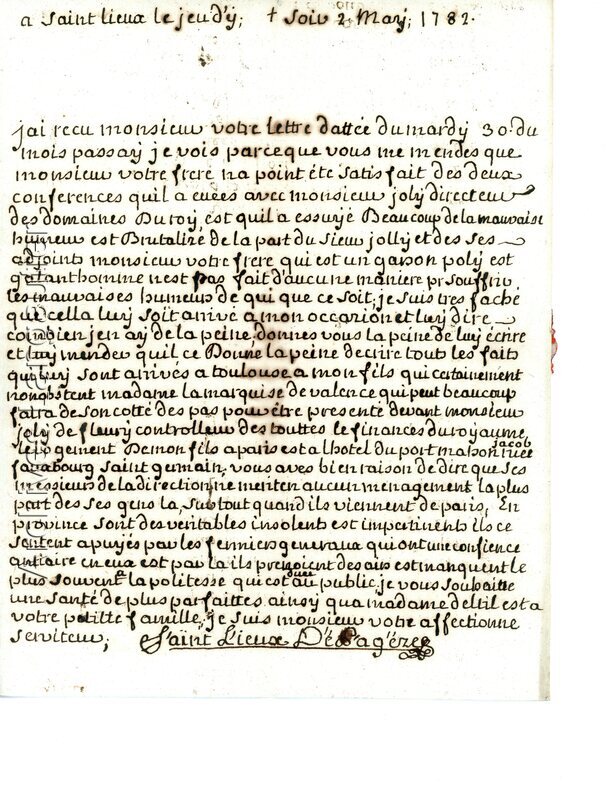 a Saint lieux le jeudÿ; + Soir 2 Maÿ; 1782.
jai recu monsieur votre lettre dattée du mardÿ 30 du
mois passaÿ je vois parce que vous me mendes que
monsieur votre frere na point éte satisfait des deux
conferences quil a euées avec monsieur jolÿ directeur
des domaines Du roÿ, est quil a essuÿé Beaucoup de la mauvaise
humeur est Brutalité de la part du Sieur jollÿ et des ses
adjoint monsieur votre frere qui est un garson polÿ est
galanthomme nest pas fait d'aucune maniere pr souffrir
les mauvaises humeurs de qui que ce soit, je suis tres faché
que cella luÿ soit arrivé a mon occasion et luÿ dire
combien jen aÿ de la peine, donnes vous la peine de luÿ écrire
et luÿ mender quil ce Donne la peine décrire tout les fait
qui luÿ sont arrivés a toulouse a mon fils qui certainement
nonobstent madame la marquise de valence qui peut beaucoup
faira de son cotté des pas pour être presenté devant monsieur
jolÿ de fleurÿ controlleur des touttes le finances du royaume,
le logement De mon fils a paris est a lhotel du port mahon ruée jacob
faubourg Saint germain, vous avés bien raison de dire que ses
messieurs de la direction ne meriten aucun menagement la plus
part des ses gens la, sur tout quand ils viennent de paris, En
province sont des veritables insolent est impertinents ils ce
sentent apuÿés par les fermiers generaux qui ont une confience
antiaire en eux est par la ils prenoient des airs est manquent le
plus souvent a la politesse qui est duée au public, je vous souhaitte
une santé de plus parfaittes ainsÿ qua madame deltil est a
votre petitte famille, je suis monsieur votre affectionne
serviteur; Saint Lieux Dé